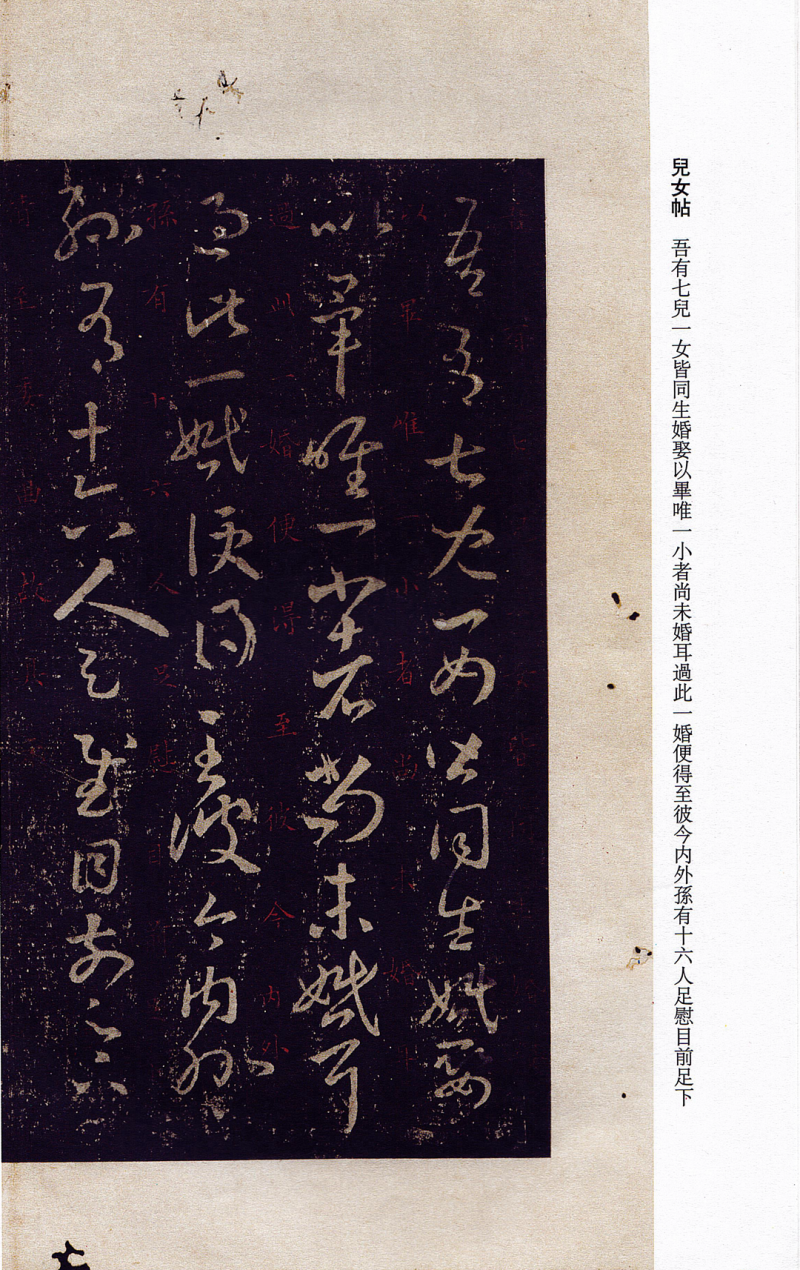 兒女帖　吾有七兒一女皆同生婚娶以畢唯一小者尚未婚耳過此一婚便得至彼今内外孫有十六人足慰目前足下
吾有七兒一女皆同生婚娶
以畢唯一小者尚未婚耳
過此一婚便得至彼今内外
孫有十六人足慰目前足下